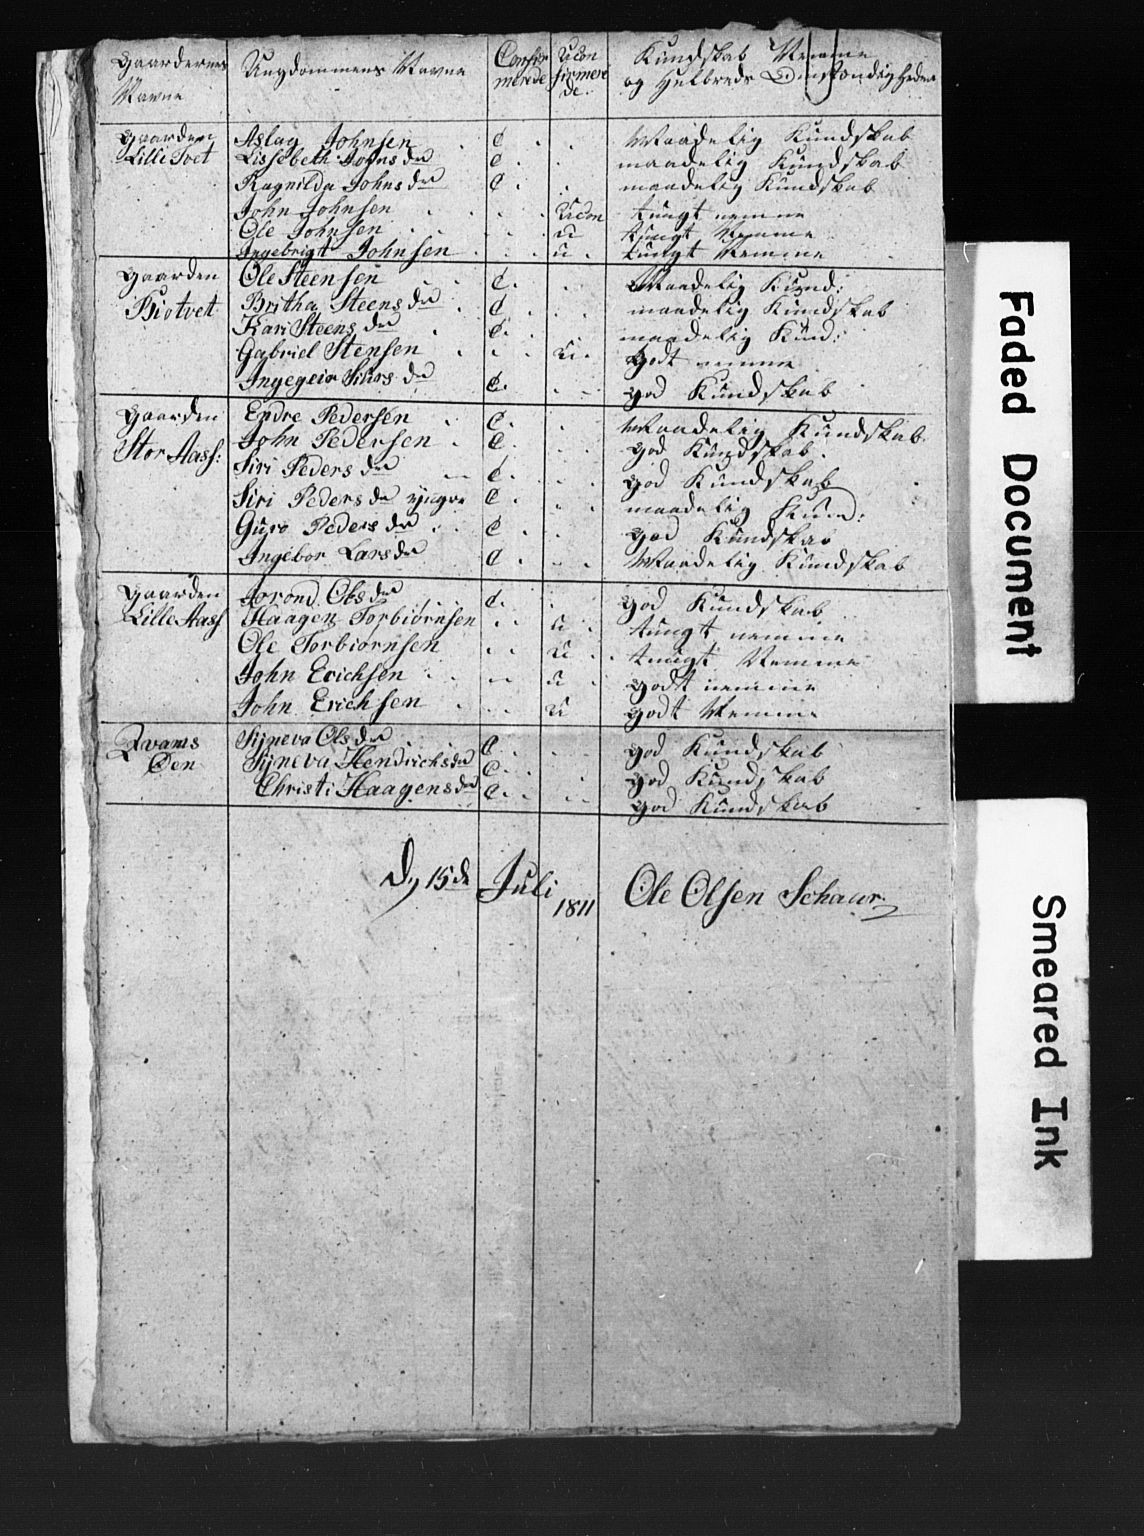 Gaardernes Navne | Ungdommens Navne | Confirmerede | Uconfirmerede | Kundskab Nemme og Helbreds Omstændigheder
Gaarden Aslag Johnsen C Maadelig Kundskab
Lille Tvet Lissebeth Johns dr C maadelig Kundskab
Ragnilda Johns dr C maadelig Kundskab
John Johnsen Ucon tungt nemme
Ole Johnsen u tungt Nemme
Ingebrigt Johnsen u tungt Nemme
Gaarden Ole Steensen C Maadelig Kund:
Biotvet Britha Steens dr C maadelig Kundskab
Kari Steens dr C maadelig Kund:
Gabriel Stensen u Godt nemme
Ingegeir Siurs dr C god Kundskab
Gaarden Endre Pedersen C Maadelig Kundskab
Stor Aass: John Pedersen C god Kundskab
Siri Peders dr C god Kundskab
Siri Peders dr yngre C maadelig Kund:
Guro Peders dr C god Kundskab
Ingebor Lars dr C Maadelig Kundskab
Gaarden Ols dr C god Kundskab
Lille Aass Haagen Torbiørnsen u tungt nemme
Ole Torbiørnsen u tungt Nemme
John Erichsen u godt nemme
John Erichsen u godt Nemme
Qvams Sijneva Ols dr C god Kundskab
Øen Sijneva Hendrichs dr C god Kundskab
Christi Haagens dr C god Kundskab
D. 15de Juli 1811 Ole Olsen Schaar
Faded Document
Smeared Ink